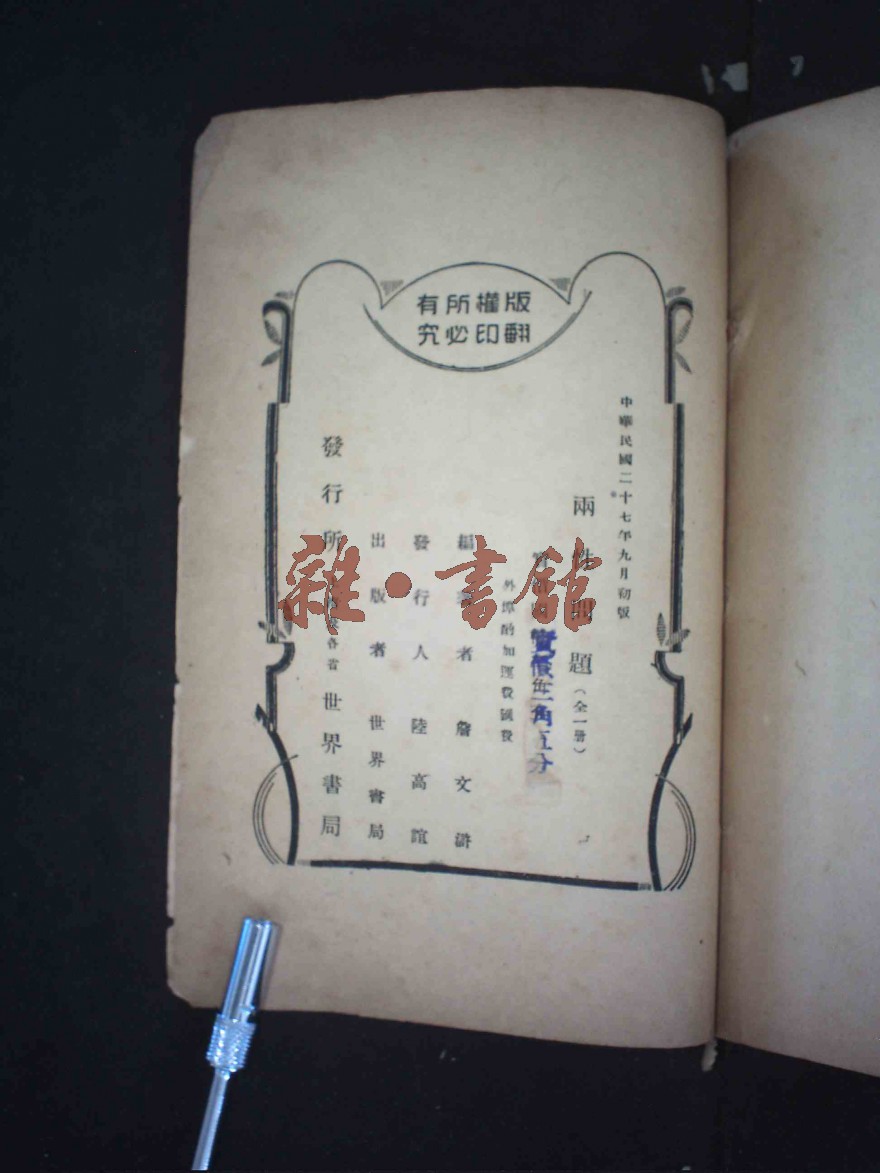 版權所有
翻印必究
中華民國二十七年九月初版
兩性問題（全一冊）
實價
實價三角五分
外埠酌加運費匯費
編著者 詹文滸
發行人 陸高誼
出版者 世界書局
發行所 各省 世界書局
雜·書館